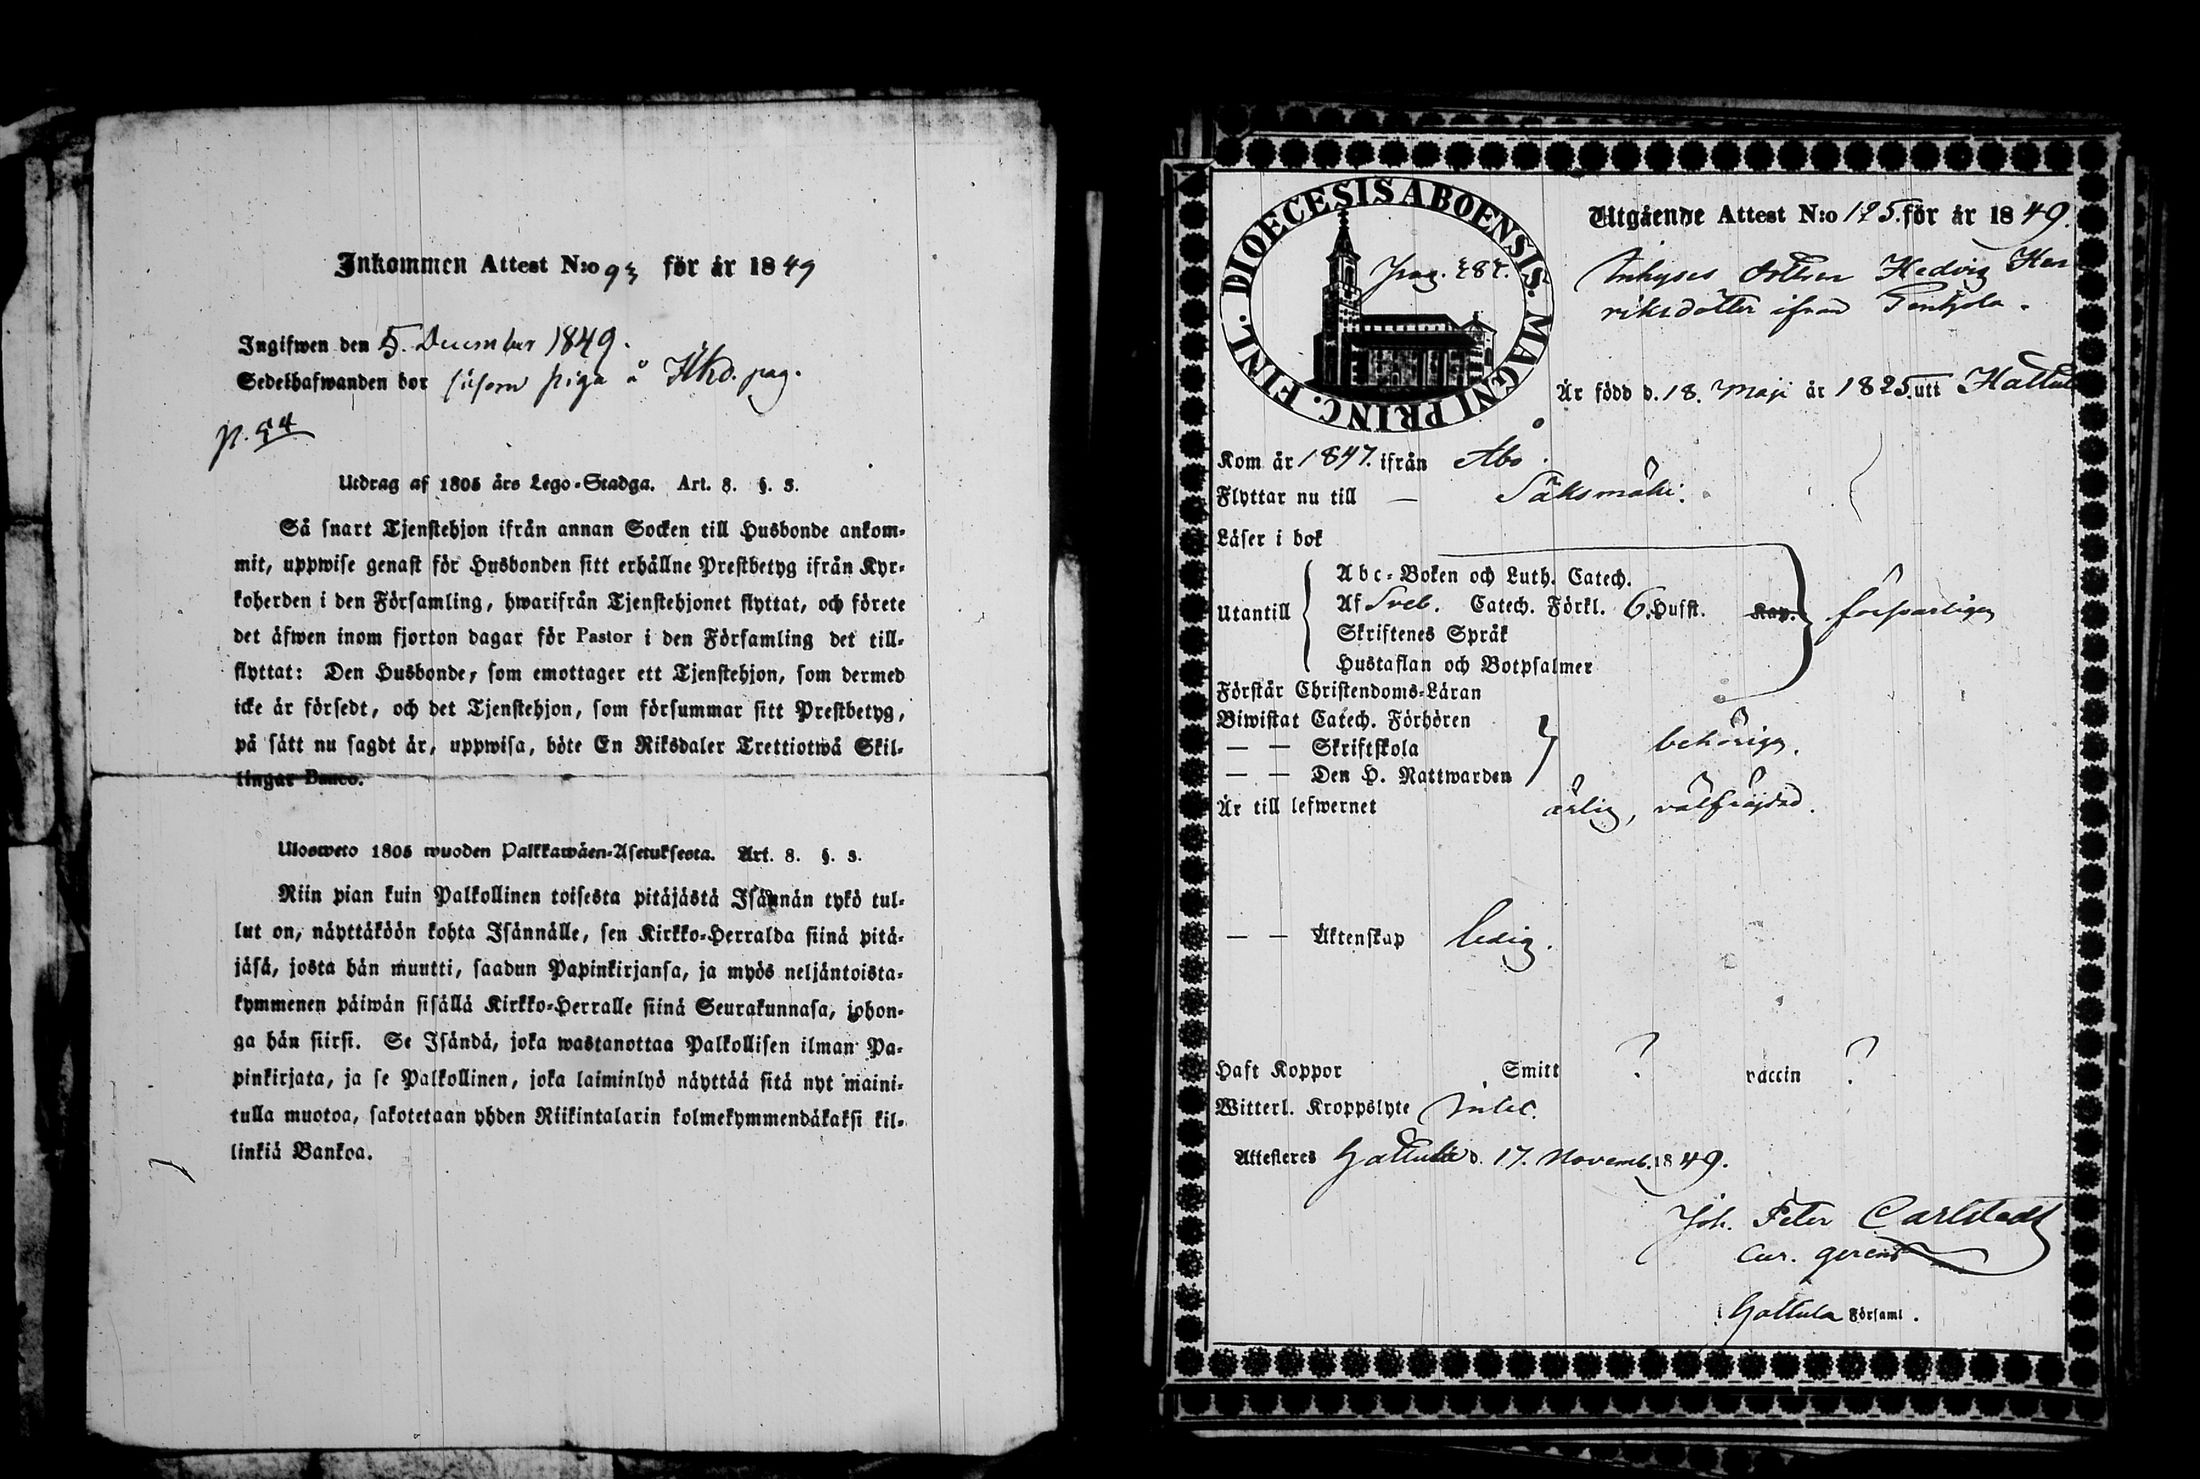 Inkommen Attest N:o 93 för år 1849
Ingifwen den 5. December 1849.
Sedelhafwanden bor såsom piga å Hkd. pag.
p. 54
Utdrag af 1805 års Lego-Stadga. Art. 8. §. 3.
Så snart Tjenstehjon ifrån annan Socken till Husbonde ankom-
mit, uppwise genast för Husbonden sitt erhållne Prestbetyg ifrån Kyr-
koherden i den Församling, hwarifrån Tjenstehjonet flyttat, och förete
det äfwen inom fjorton dagar för Pastor i den Församling det till-
flyttat: Den Husbonde, som emottager ett Tjenstehjon, som dermed
icke är försedt, och det Tjenstehjon, som försummar sitt Prestbetyg,
på sätt nu sagdt är, uppwisa, böte En Riksdaler Trettiotwå Skil-
lingar Banco.
Ulosweto 1805 wuoden Palkkawäen-Asetuksesta. Art. 8. §. 3.
Niin pian kuin Palkollinen toisesta pitäjästä Isännän tykö tul-
lut on, näyttäköön kohta Isännälle, sen Kirkko-Herralda siinä pitä-
jäsä, josta hän muutti, saadun Papinkirjansa, ja myös neljäntoista-
kymmenen päiwän sisällä Kirkko-Herralle siinä Seurakunnasa, johon-
ga hän siirsi. Se Isändä, joka wastanottaa Palkollisen ilman Pa-
pinkirjata, ja se Palkollinen, joka laiminlyö näyttää sitä nyt maini-
tulla muotoa, sakotetaan yhden Riikintalarin kolmekymmendäkaksi kil-
linkiä Bankoa.
DIOECESIS ABOENSIS. MAGNI PRINC. FINL.
pag. 282.
Utgående Attest N:o 125. för år 1849.
Inhyses dottren Hedvig Hen
riksdotter ifrån
Är född d. 18. Maji år 1825. uti Hattula
Kom år 1847. ifrån Åbo.
Flyttar nu till — Sääksmäki.
Läser i bok
Utantill
Abc-Boken och Luth. Catech.
Af Sveb. Catech. Förkl. 6. Hufst. Kap. försvarligen
Skriftenes Språk
Hustaflan och Botpsalmer
Förstår Christendoms-Läran
Biwistat Catech. Förhören
— — Skriftskola behörigen.
— — Den H. Nattwarden
Är till lefwernet ärlig, välfräjdad.
— — Äktenskap ledig.
Haft Koppor Smitt ? vaccin ?
Witterl. Kroppslyte intet.
Attesteres Hattula d. 17. Novemb. 1849.
Joh. Peter Carlstedt
Cur. gerens
i Hattula Församl.